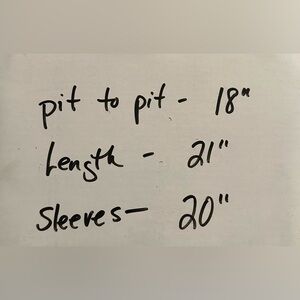 pit to pit - 18"
Length - 21"
Sleeves- 20"